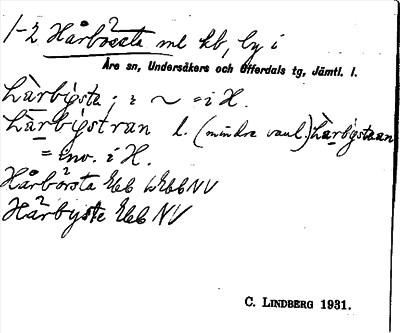 1-2 Hårbörsta ml kb, by i
Åre sn, Undersåkers och Offerdals tg, Jämtl. l.
Làrbı̣sta; i ~ = i H.
Hàrbı̣stran l. (mindre vanl.) hàrbı̣staan
= inv. i H.
Hårbörsta Ebb WEbb NV
Hårbyste Ebb NV
C. LINDBERG 1931.